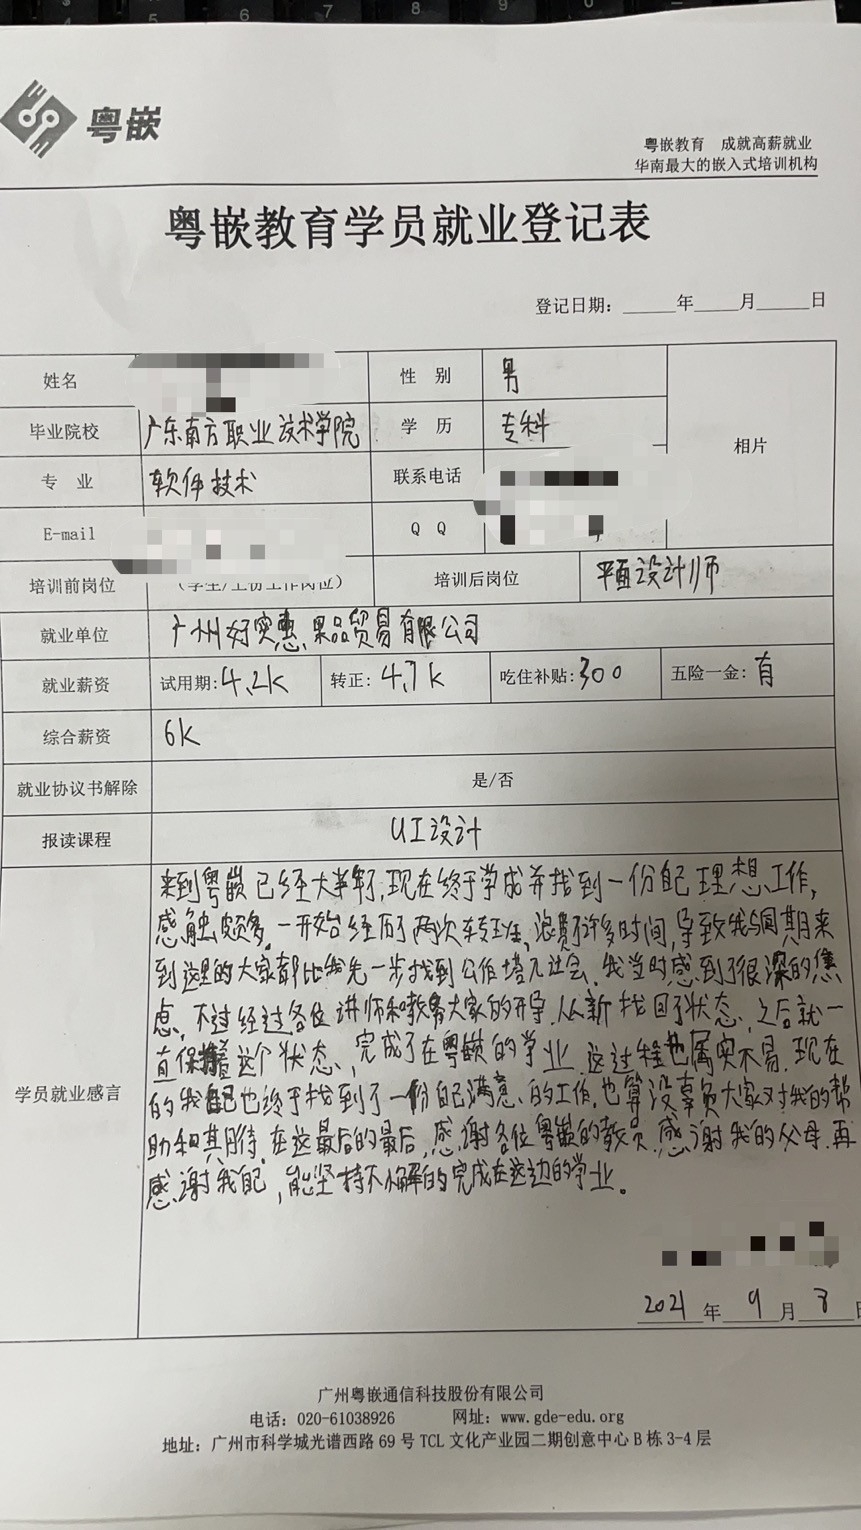 粤嵌
粤嵌教育 成就高薪就业
华南最大的嵌入式培训机构
粤嵌教育学员就业登记表
登记日期：______年_____月______日
姓名 性 别 男
毕业院校 广东南方职业技术学院 学 历 专科
相片
专 业 软件技术 联系电话
E-mail Q Q
培训前岗位 培训后岗位 平面设计师
就业单位 广州好实惠果品贸易有限公司
就业薪资 试用期:4.2K 转正:4.7K 吃住补贴:300 五险一金:有
综合薪资 6K
就业协议书解除 是/否
报读课程 UI设计
学员就业感言
来到粤嵌已经大半年了,现在终于学成并找到一份自己理想工作,
感触颇多。一开始经历了两次转班,浪费了许多时间,导致我与同期来
到这里的大家都比我先一步找到工作塔入社会,我当时感到了很深的焦
虑,不过经过各位讲师和教务大家的开导,从新找回了状态,之后就一
直保持着这个状态,完成了在粤嵌的学业,这过程也属实不易,现在
的我自己也终于找到了一份自己满意的工作,也算没辜负大家对我的帮
助和其期待,在这最后的最后,感谢各位粤嵌的教员,感谢我的父母,再
感谢我自己,能坚持不懈的完成在这边的学业。
2021 年 9 月 8 日
广州粤嵌通信科技股份有限公司
电话：020-61038926 网址：www.gde-edu.org
地址：广州市科学城光谱西路 69 号 TCL 文化产业园二期创意中心 B 栋 3-4 层